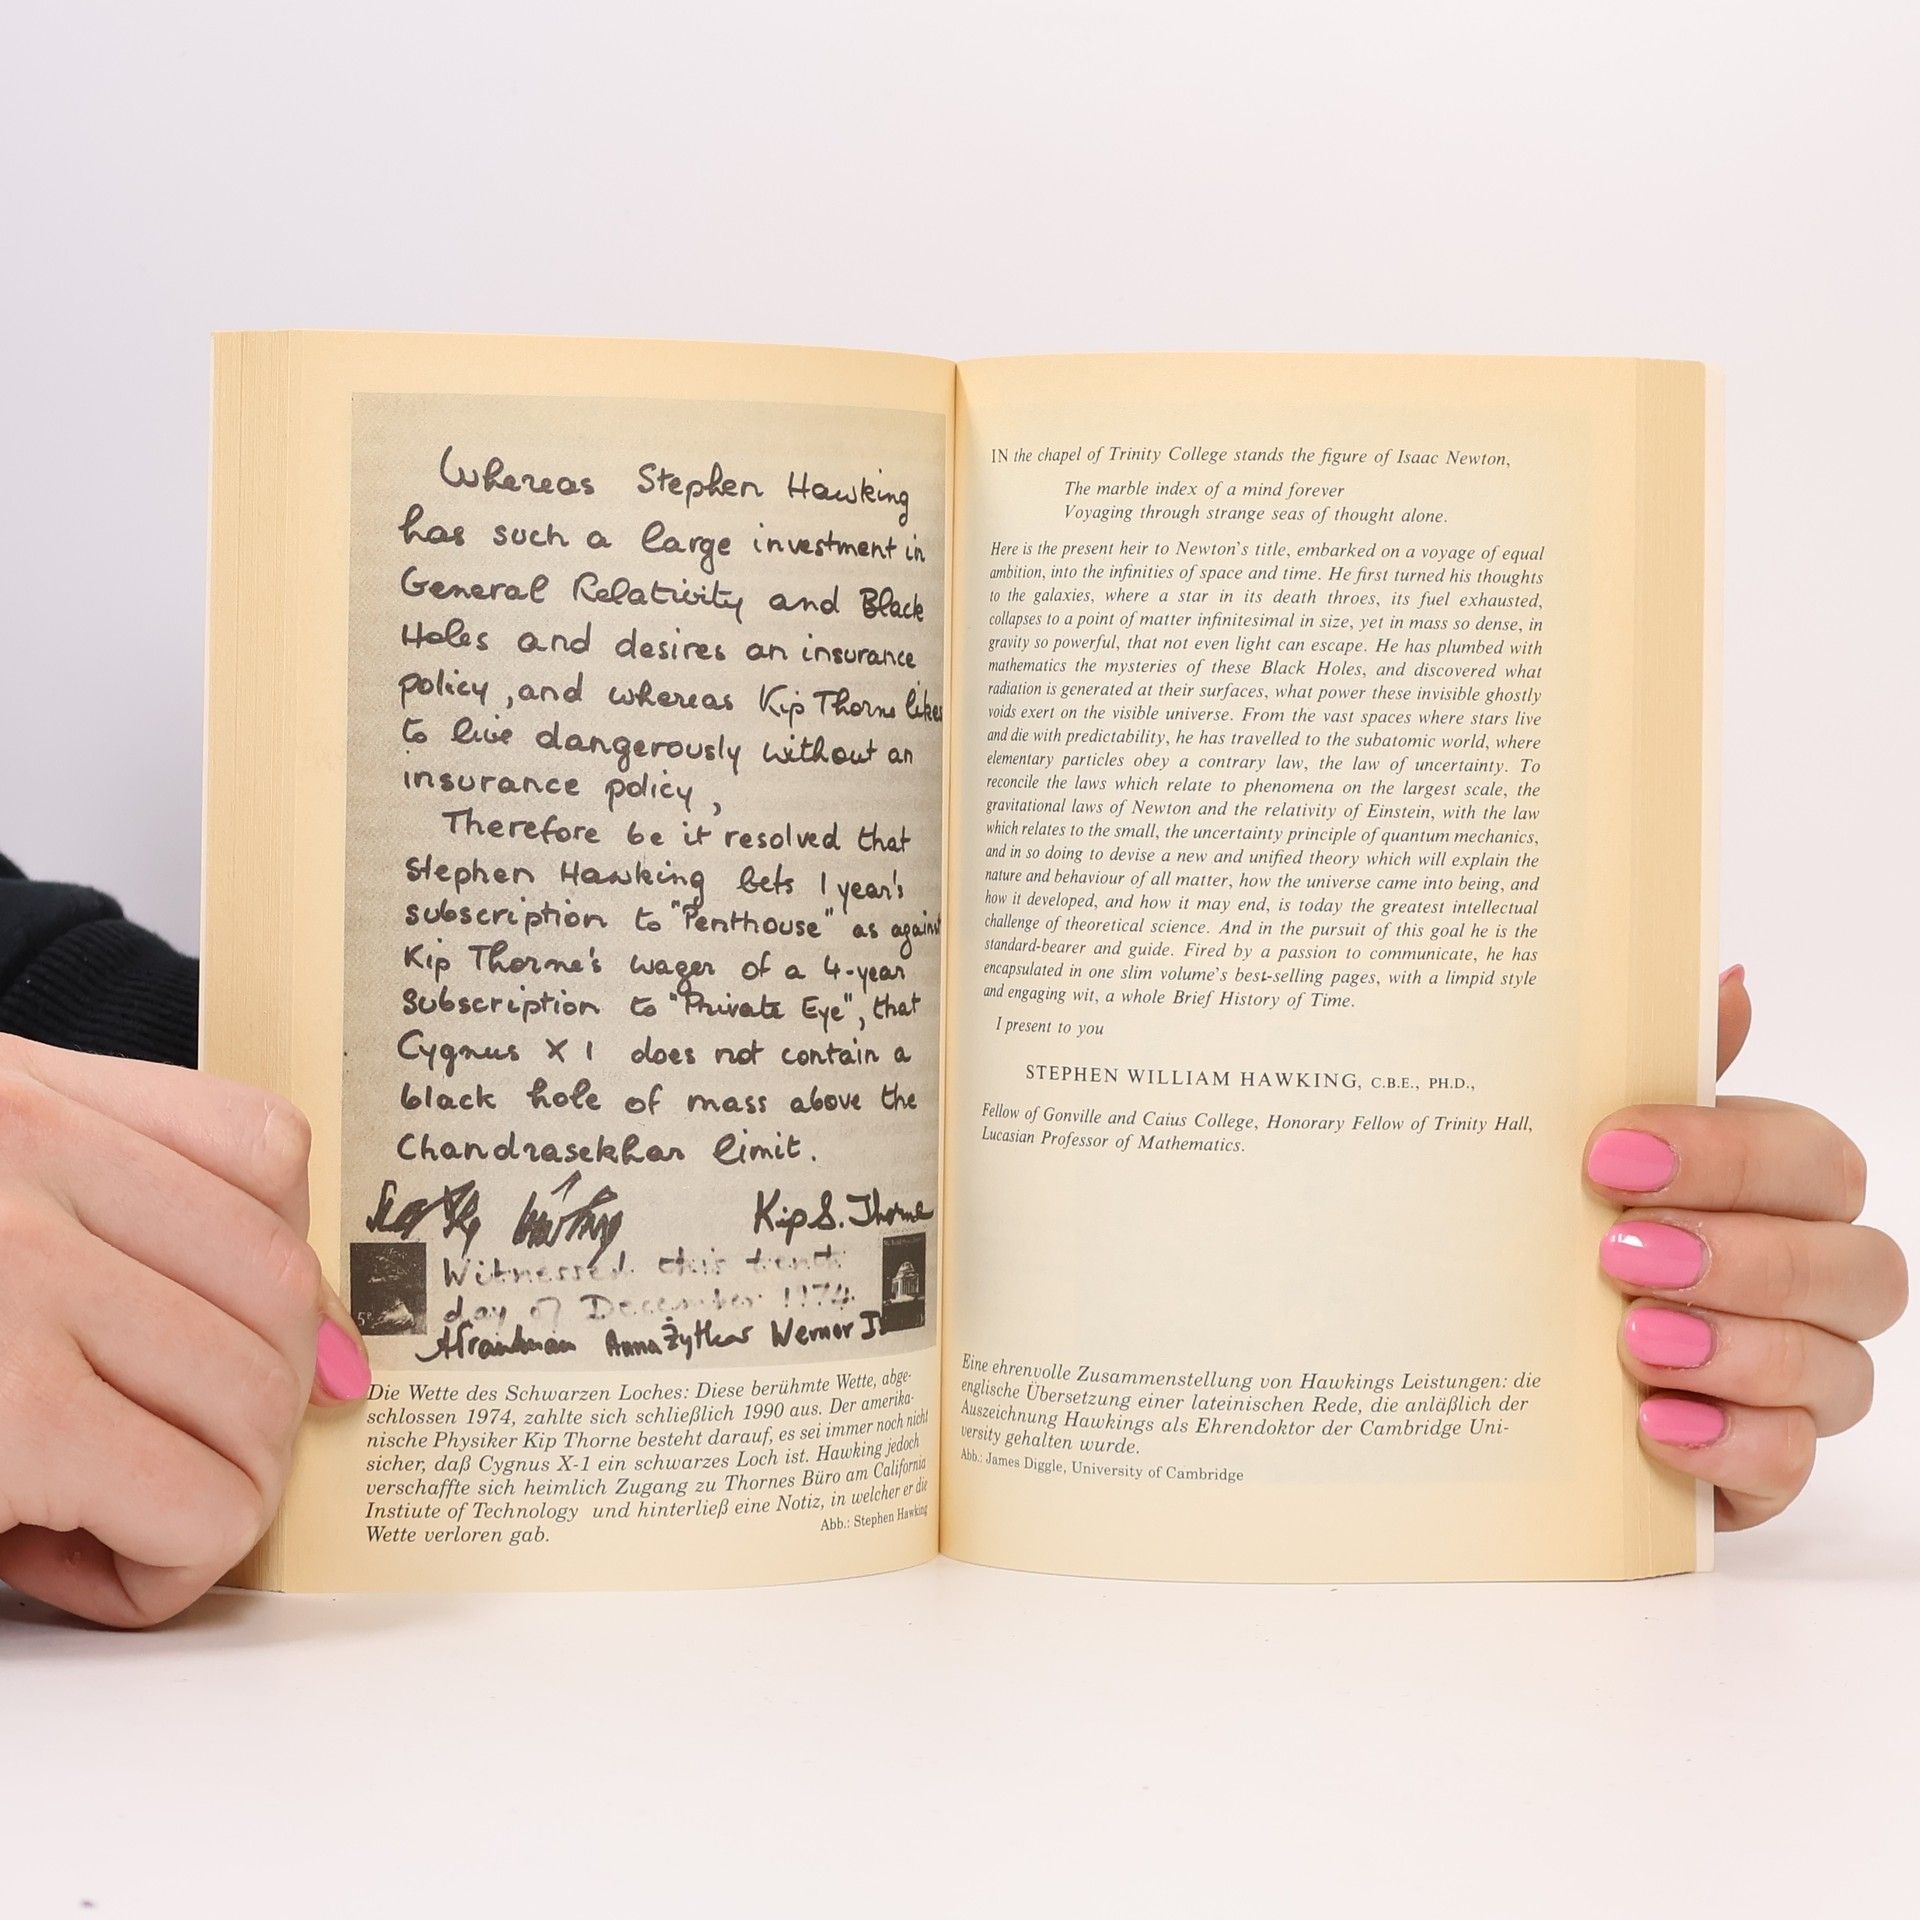 Whereas Stephen Hawking
has such a large investment in
General Relativity and Black
Holes and desires an insurance
policy, and whereas Kip Thorne likes
to live dangerously without an
insurance policy,
Therefore be it resolved that
Stephen Hawking bets 1 year's
subscription to "Penthouse" as against
Kip Thorne's wager of a 4-year
Subscription to "Private Eye", that
Cygnus X 1 does not contain a
black hole of mass above the
Chandrasekhar limit.
Kip S. Thorne
Witnessed this tenth
day of December 1974
Anna Żytkow Werner
Die Wette des Schwarzen Loches: Diese berühmte Wette, abge-
schlossen 1974, zahlte sich schließlich 1990 aus. Der amerika-
nische Physiker Kip Thorne besteht darauf, es sei immer noch nicht
sicher, daß Cygnus X-1 ein schwarzes Loch ist. Hawking jedoch
verschaffte sich heimlich Zugang zu Thornes Büro am California
Instiute of Technology und hinterließ eine Notiz, in welcher er die
Wette verloren gab.
Abb.: Stephen Hawking
IN the chapel of Trinity College stands the figure of Isaac Newton,
The marble index of a mind forever
Voyaging through strange seas of thought alone.
Here is the present heir to Newton's title, embarked on a voyage of equal
ambition, into the infinities of space and time. He first turned his thoughts
to the galaxies, where a star in its death throes, its fuel exhausted,
collapses to a point of matter infinitesimal in size, yet in mass so dense, in
gravity so powerful, that not even light can escape. He has plumbed with
mathematics the mysteries of these Black Holes, and discovered what
radiation is generated at their surfaces, what power these invisible ghostly
voids exert on the visible universe. From the vast spaces where stars live
and die with predictability, he has travelled to the subatomic world, where
elementary particles obey a contrary law, the law of uncertainty. To
reconcile the laws which relate to phenomena on the largest scale, the
gravitational laws of Newton and the relativity of Einstein, with the law
which relates to the small, the uncertainty principle of quantum mechanics,
and in so doing to devise a new and unified theory which will explain the
nature and behaviour of all matter, how the universe came into being, and
how it developed, and how it may end, is today the greatest intellectual
challenge of theoretical science. And in the pursuit of this goal he is the
standard-bearer and guide. Fired by a passion to communicate, he has
encapsulated in one slim volume's best-selling pages, with a limpid style
and engaging wit, a whole Brief History of Time.
I present to you
STEPHEN WILLIAM HAWKING, C.B.E., PH.D.,
Fellow of Gonville and Caius College, Honorary Fellow of Trinity Hall,
Lucasian Professor of Mathematics.
Eine ehrenvolle Zusammenstellung von Hawkings Leistungen: die
englische Übersetzung einer lateinischen Rede, die anläßlich der
Auszeichnung Hawkings als Ehrendoktor der Cambridge Uni-
versity gehalten wurde.
Abb.: James Diggle, University of Cambridge